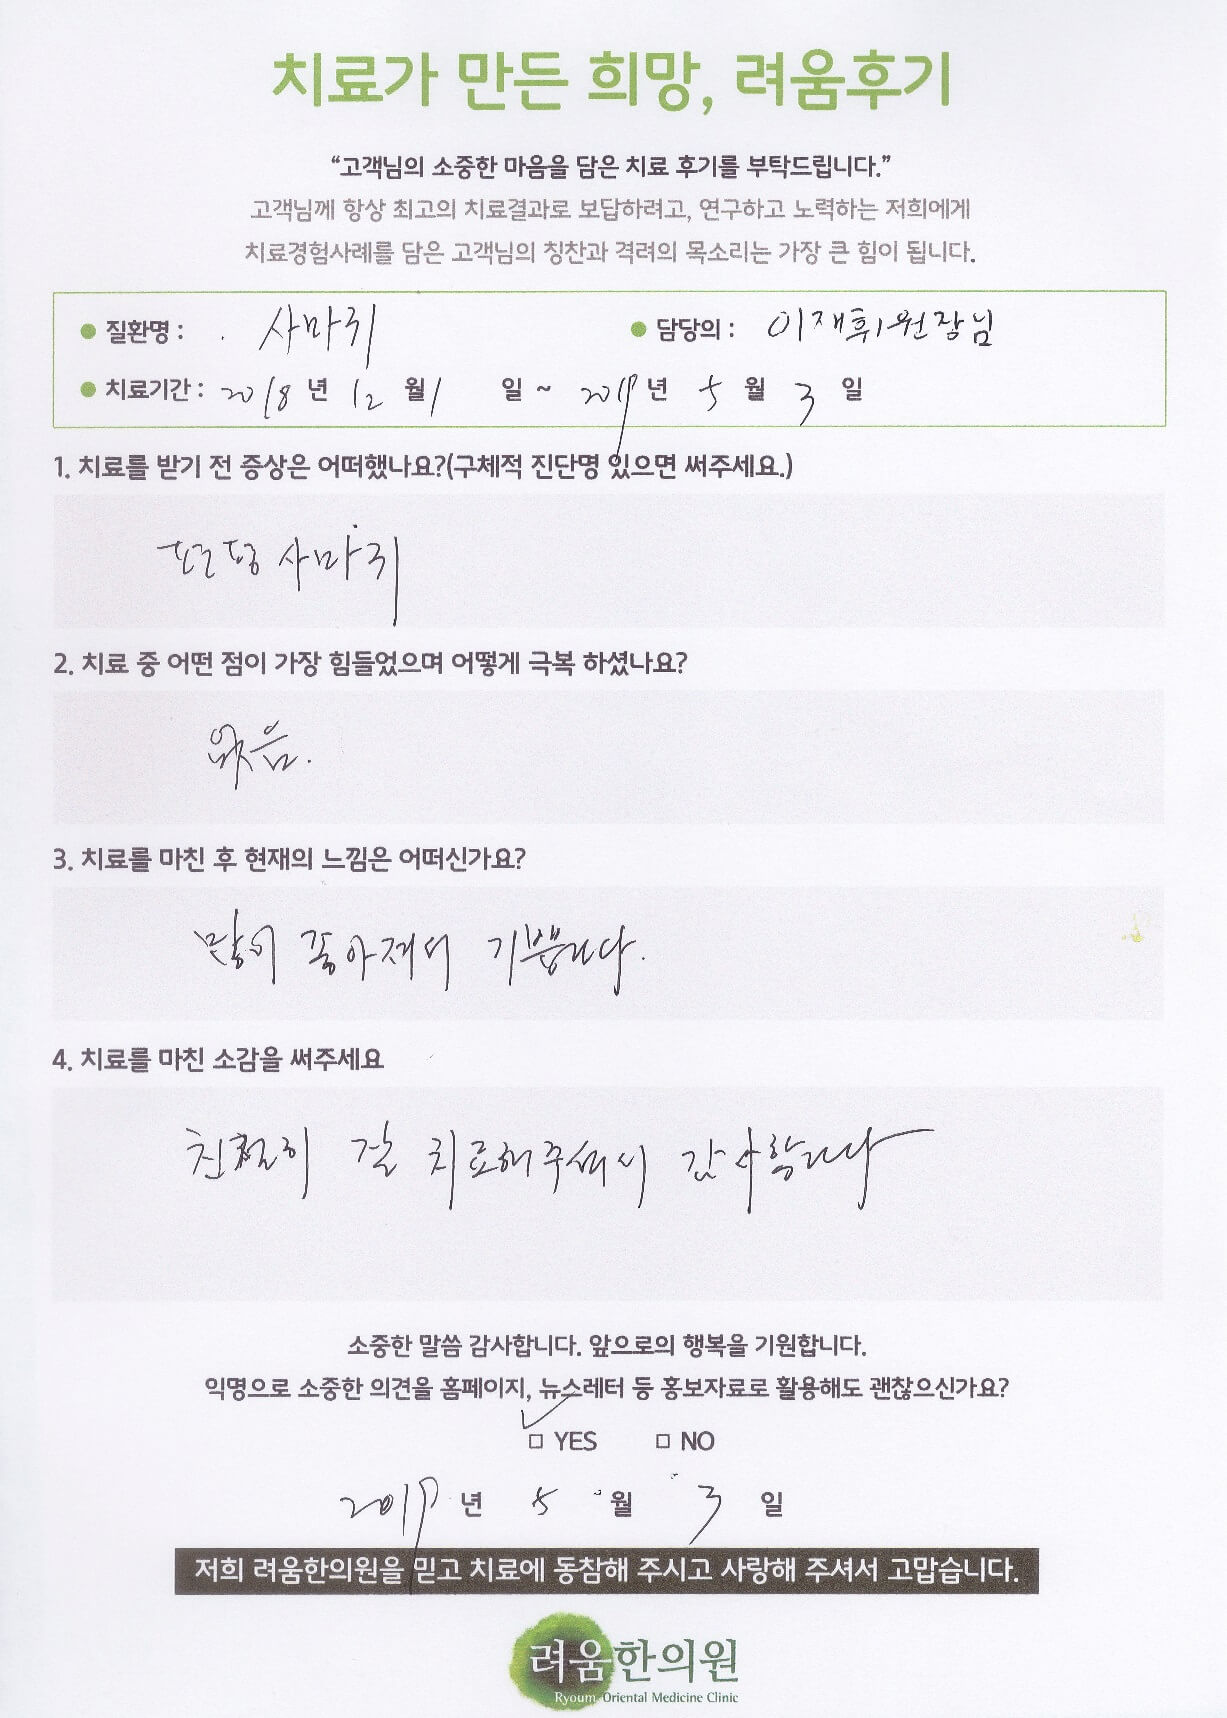 치료가 만든 희망, 려움후기
“고객님의 소중한 마음을 담은 치료 후기를 부탁드립니다.”
고객님께 항상 최고의 치료결과로 보답하려고, 연구하고 노력하는 저희에게
치료경험사례를 담은 고객님의 칭찬과 격려의 목소리는 가장 큰 힘이 됩니다.
질환명 : 사마귀 담당의 : 이재휘원장님
치료기간 : 2018 년 12 월 1 일 ~ 2019 년 5 월 3 일
1. 치료를 받기 전 증상은 어떠했나요?(구체적 진단명 있으면 써주세요.)
편평사마귀
2. 치료 중 어떤 점이 가장 힘들었으며 어떻게 극복 하셨나요?
없음.
3. 치료를 마친 후 현재의 느낌은 어떠신가요?
많이 좋아져서 기쁩니다.
4. 치료를 마친 소감을 써주세요
친절히 잘 치료해주셔서 감사합니다
소중한 말씀 감사합니다. 앞으로의 행복을 기원합니다.
익명으로 소중한 의견을 홈페이지, 뉴스레터 등 홍보자료로 활용해도 괜찮으신가요?
✓□ YES □ NO
2019 년 5 월 3 일
저희 려움한의원을 믿고 치료에 동참해 주시고 사랑해 주셔서 고맙습니다.
려움한의원
Ryoum Oriental Medicine Clinic